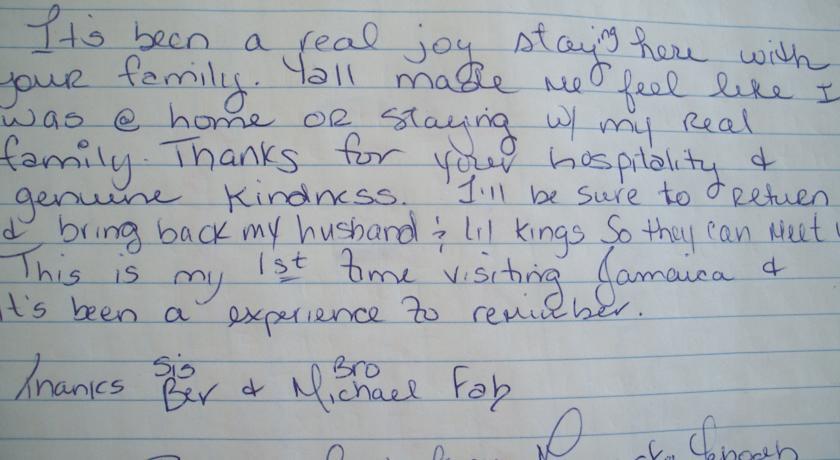 It's been a real joy staying here with
your family. Yall made me feel like I
was @ home OR staying w/ my Real
family. Thanks for your hospitality &
genuine Kindness. I'll be sure to Return
& bring back my husband & lil kings So they can Meet
This is my 1st time visiting Jamaica &
it's been a experience to remember.
Thanks Sis Bev & Bro Michael Fab